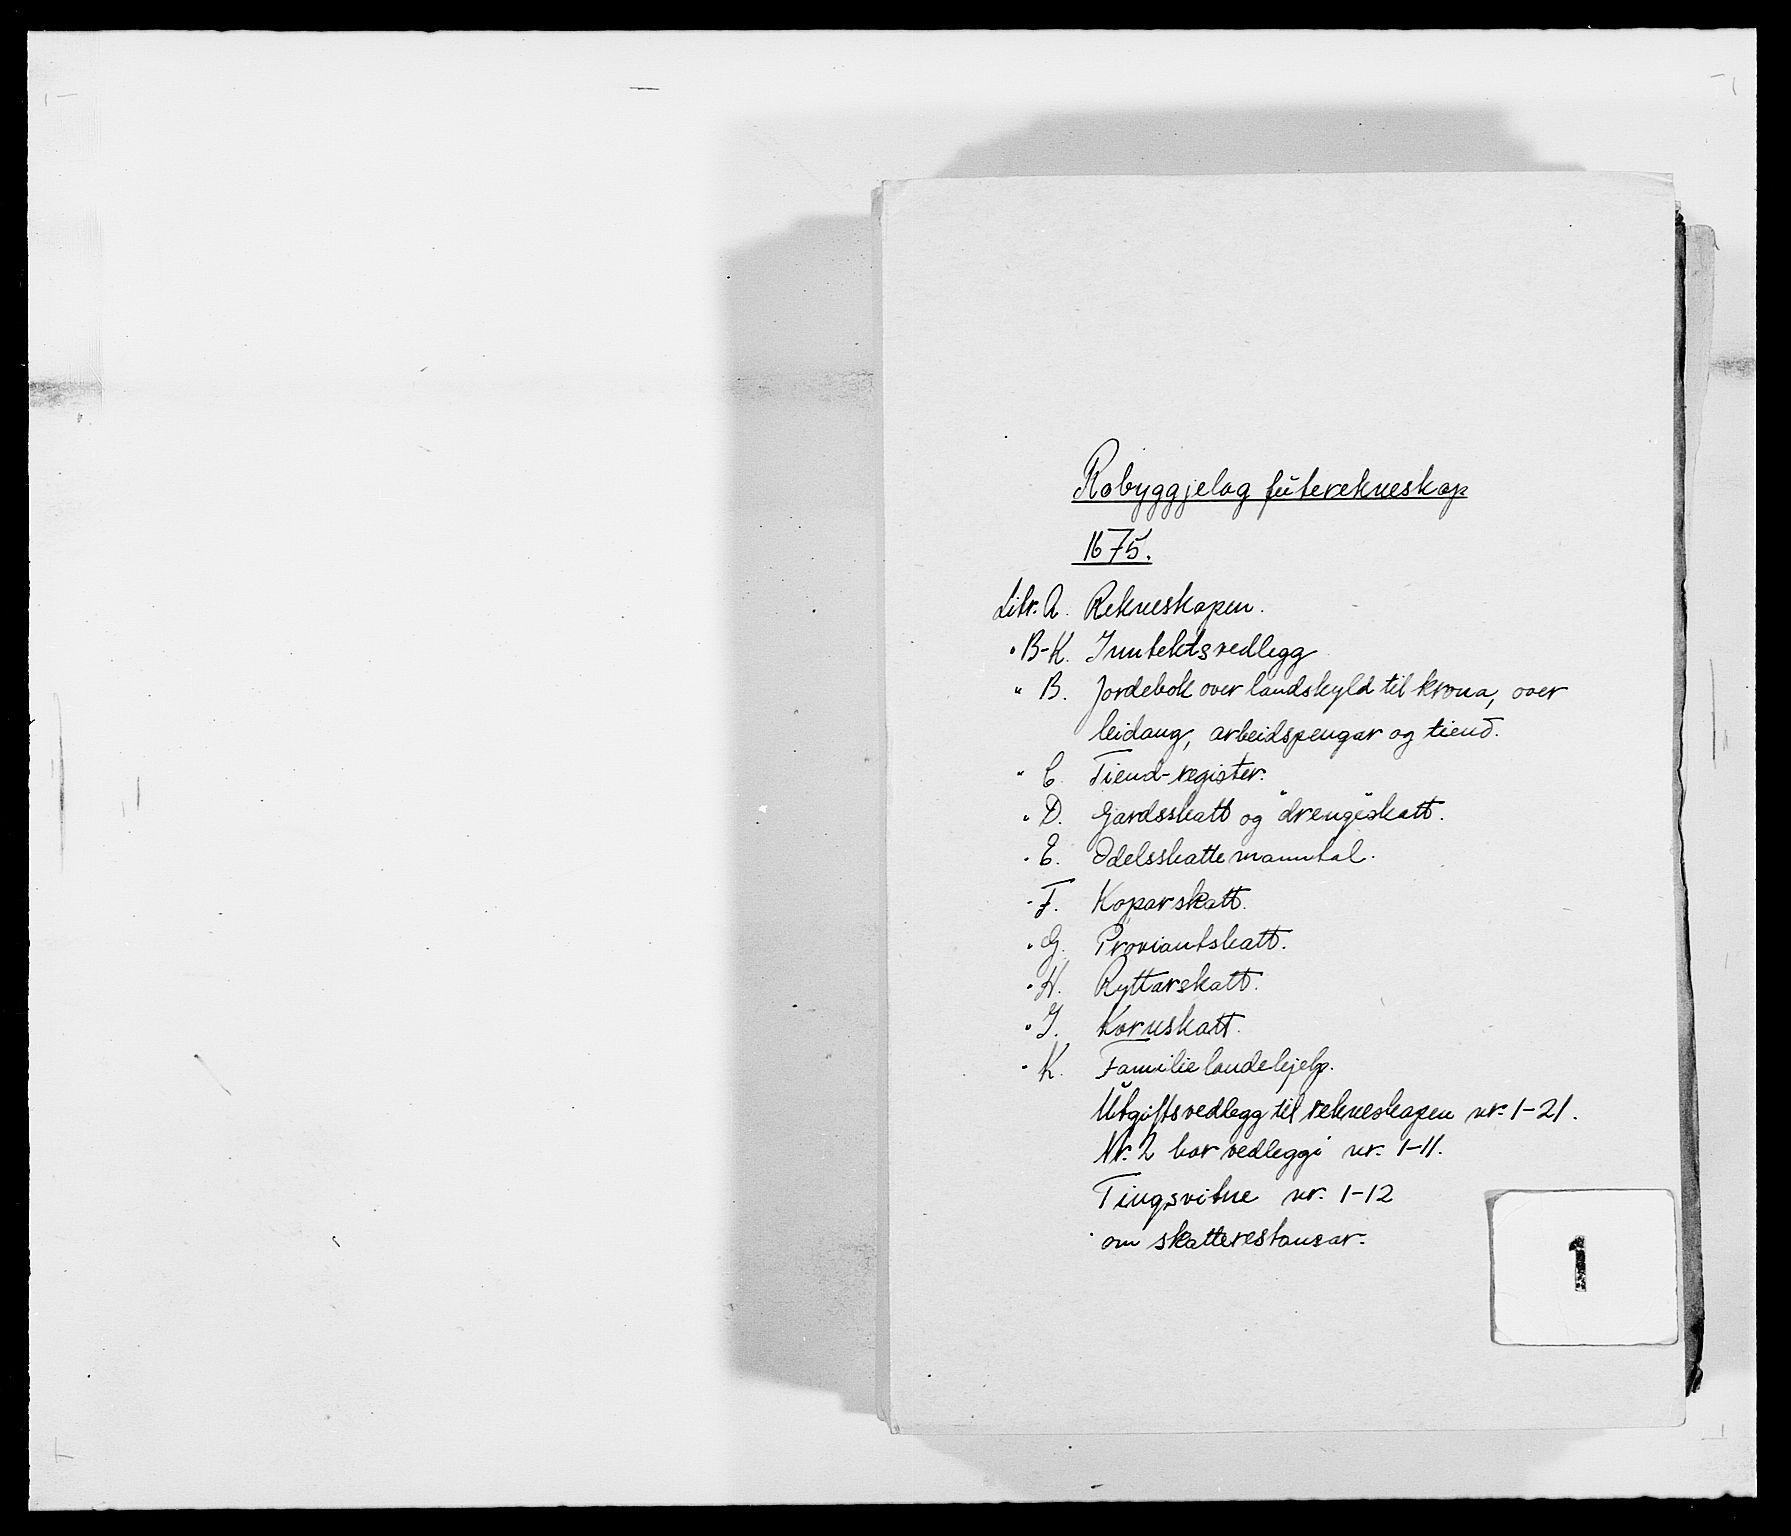 Robyggjelag futerekneskap
1675.
Litr. A. Rekneskapen.
" B-K. Inntektsvedlegg
" B. Jordebok over landskyld til kruna, over
leidang, arbeidspengar og tiend.
" C. Tiend-register.
" D. Gardsskatt og "drengeskatt.
" E. Odelsskattemanntal.
" F. Koparskatt.
" G. Proviantskatt.
" H. Ryttarskatt.
" J. Kornskatt.
" K. Familielandehjelp.
Utgiftsvedlegg til rekneskapen nr. 1-21.
Nr. 2 har vedleggi nr. 1-11.
Tingsvitne nr. 1-12
om skatterestansar.
1